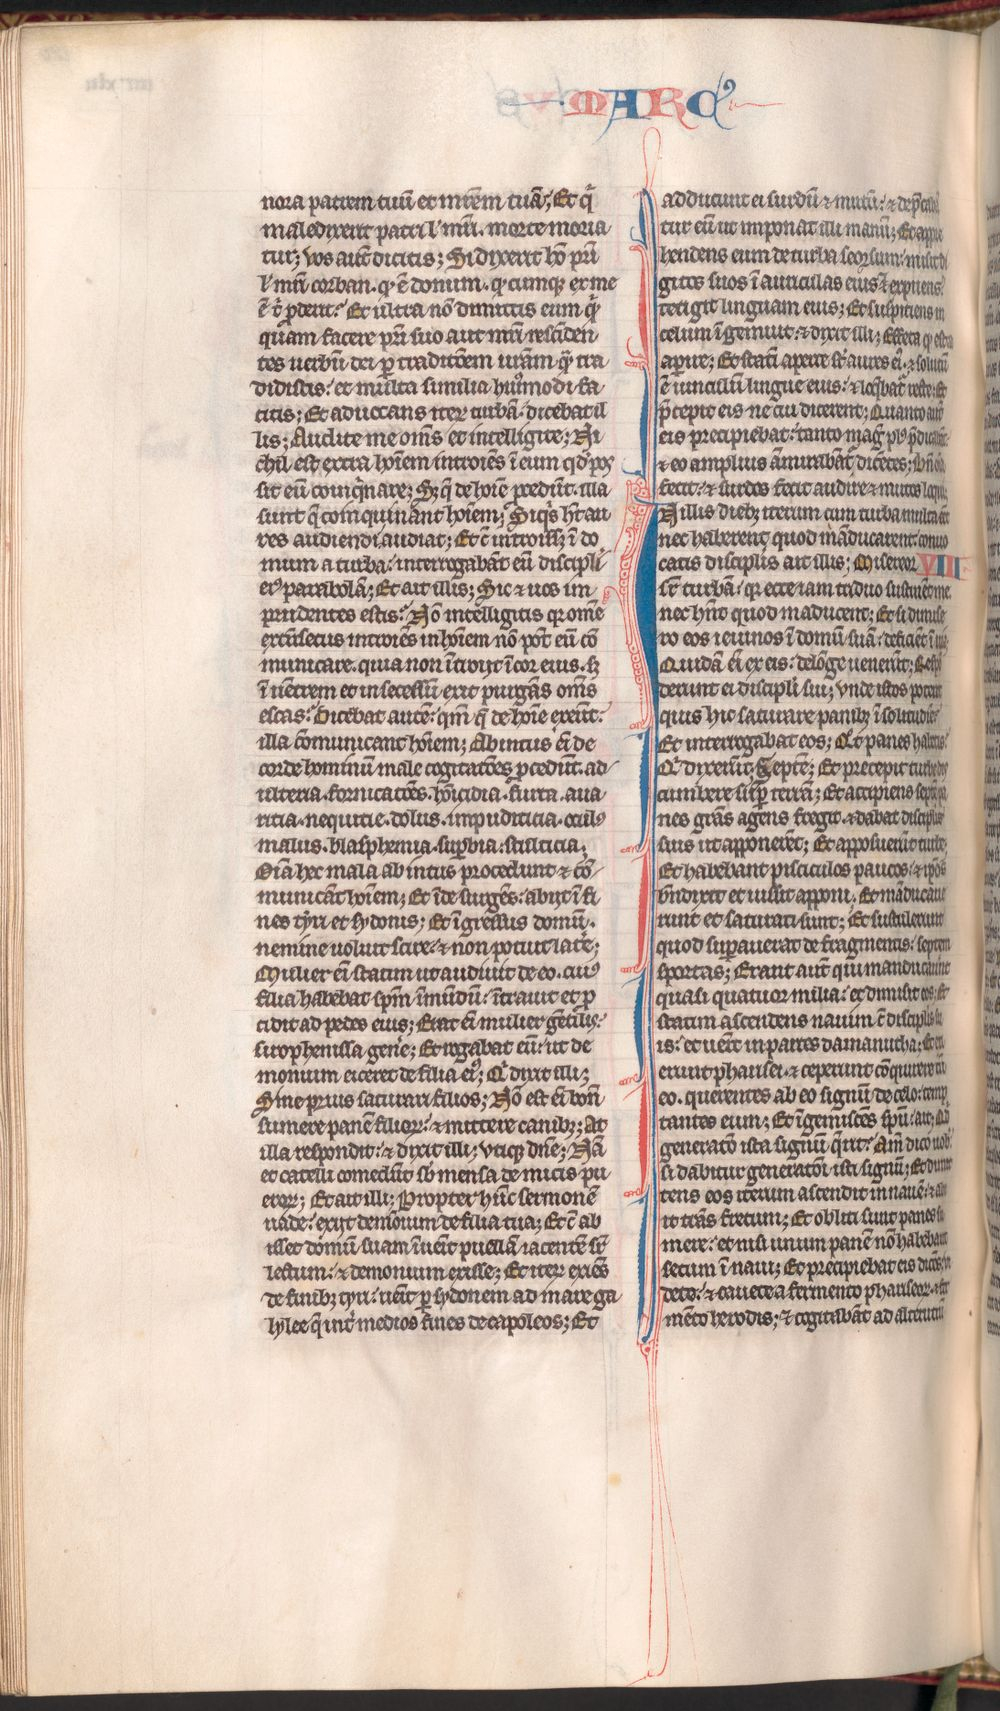 MARC
nora patrem tuū et mr̄em tuā; Et q̄
maledixerit patri ł mr̄i. morte moria
tur; Vos aut̄ dicitis; Si dixerit hō pr̄i
ł mr̄i corban. qď ē donum. qď cumque ex me
ē t̄ pderit: Et ultra nō dimittis eum q̄c
quam facere pr̄i suo aut mr̄i rescinden
tes uerbū dei p traditiōem ur̄am qā tra
didistis: et multa similia hiꝰmodi fa
citis; Et aduocans iteꝝ turbā. dicebat il
lis; Audite me om̄s et intelligite; Ni
chil est extra hoīem introiēs ī eum qď pos
sit eū coinq̄nare; Sꝫ q̄ de hoīe pcedūt. illa
sunt q̄ coinquināt hoīem; Siqͥs ht̄ au
res audiendi audiat; Et c̄ introiss; ī do
mum a turba: interrogabāt eū discipli
eiꝰ parabolā; Et ait illis; Sic et uos im
prudentes estis: Nō intelligitis qꝛ omē
extrīsecus introiēs in hoīem nō pōt eū cō
municare. quia non ītroit ī cor eius. sꝫ
ī uētrem et in secessū exit purgās om̄s
escas: Dicebat autē: qm̄ q̄ de hoīe exeūt:
illa cōmunicant hoīem; Ab intus ēi de
corde hominū male cogitatōes pcedūt. ad
ulteria. fornicatōes. hoīcidia. furta. aua
ritia. nequitie. dolus. impudicitia. oculꝰ
malus. blasphemia. suꝑbia. stulticia;
Oīa hec mala ab intus procedunt ⁊ cō
municāt hoīem; Et īde surgēs: abijt ī fi
nes tyri et sydonis; Et īgressus domū.
nemine uoluit scire: ⁊ non potuit latē;
Mulier ēi statim ut audiuit de eo. cuiꝰ
filia habebat spm̄ īmūdū: ītrauit et p
cidit ad pedes eius; Erat ēi mulier gētilis:
sirophenissa genē; Et rogabat eū: ut de
monium eiceret de filia eiꝰ; Qͥ dixit illi;
Sine prius saturari filios; Nō est ēi bonū
sumere panē filioꝝ: ⁊ mittere canibꝫ; At
illa respondit: ⁊ dixit illi; Vtiqꝫ dn̄e; Nā
et catelli comedūt sb mensa de micis pu
eroꝝ; Et ait illi; Propter hūc sermonē
uade: exijt demōium de filia tua; Et c̄ ab
isset domū suam īuēit puellā iacentē sr̄
lectum: ⁊ demonium exisse; Et iteꝝ exiēs
de finibꝫ tyri: uēit p sydonem ad mare ga
lylee q̄ int̄ medios fines decapoleos; Et
adducunt ei surdū ⁊ mutū: ⁊ dep̄caba
tur eū ut imponat illi manū; Et appre
hendens eum de turba seorsum: misit di
gitos suos ī auriculas eius: ⁊ expuens:
tetigit linguam eius; Et suspitiens in
celum īgemuit: ⁊ dixit illi; Effeta qď est
aperire; Et statī aperte st̄ aures eiꝰ. ⁊ solutū
ē uinculū lingue eius: ⁊ loq̄bat᷑ recte; Et
p̄cepit eis ne cui dicerent; Quanto autē
eis precipiebat: tanto magͥ plꝰ p̄dicabāt:
⁊ eo amplius āmirabāt᷑ dicētes; Bn̄ oīa
fecit: ⁊ surdos fecit audire ⁊ mutos loqui;
N illis diebꝫ iterum cum turba multa eēt
nec haberent quod māducarent: conuo
catis disciplis ait illis; Misereor VIII
sr̄ turbā: qꝛ ecce iam triduo sustinēt me.
nec hn̄t quod māducent; Et si dimise
ro eos ieiunos ī domū suā: deficiēt ī uia;
Quidā ēi ex eis: de lōge uenerūt; Respō
derunt ei discipli sui; Vnde istos poterit
quis hic saturare panibꝫ ī solitudīe:
Et interrogabat eos; Qͦt panes habetis:
Qͥ dixerūt. Septē; Et precepit turbe dis
cumbere suꝑ terrā; Et accipiens septē pa
nes grās agens fregit. ⁊ dabat disciplis
suis ut apponerēt; Et apposuerūt turbe;
Et habebant pisciculos paucos: ⁊ ipōs
bn̄dixit et iussit apponi. Et māducaue
runt et saturati sunt; Et sustulerunt
quod suꝑauerat de fragmentis: septem
sportas; Erant aut̄ qui manducauerūt
quasi quatuor milia: et dimisit eos; Et
statim ascendens nauim c̄ disciplis su
is: et uēit in partes damanutha; Et exi
erunt pharisei. ⁊ ceperunt cōquirere cū
eo. querentes ab eo signū de celo: temp
tantes eum; Et īgemiscēs spū: ait; Qͥd
generatō ista signū q̄rit: Am̄ dico uob̄:
si dabitur generatōi isti signū; Et dimit
tens eos iterum ascendit in nauē: ⁊ abi
it trās fretum; Et obliti sunt panes su
mere: et nisi unum panē nō habebant
secum ī naui; Et precipiebat eis dicēs; vi
dete: ⁊ cauete a fermento phariseoꝝ. ⁊ fer
mēto herodis; ⁊ cogitabāt ad alterutrū